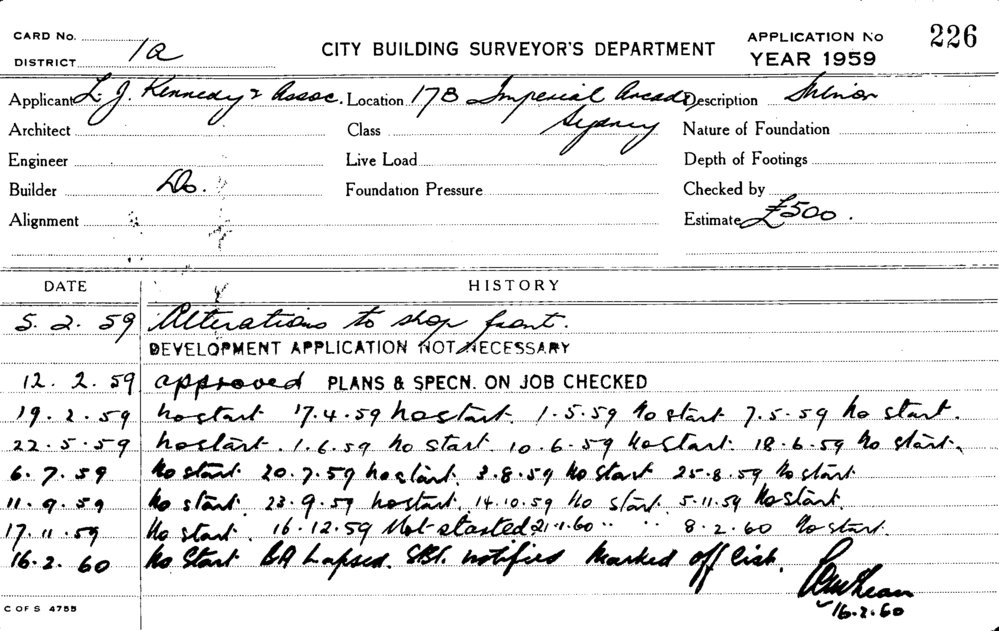 CARD No.
DISTRICT 1a
CITY BUILDING SURVEYOR'S DEPARTMENT
APPLICATION No 226
YEAR 1959
Applicant L. J. Kennedy & Assoc. Location 17B Imperial Arcade, Description Minor
Sydney
Architect Class Nature of Foundation
Engineer Live Load Depth of Footings
Builder Do. Foundation Pressure Checked by
Alignment Estimate £500.
DATE HISTORY
5. 2. 59 Alterations to shop front.
DEVELOPMENT APPLICATION NOT NECESSARY
12. 2. 59 approved PLANS & SPECN. ON JOB CHECKED
19. 2. 59 No start 17.4.59 No start. 1.5.59 No start 7.5.59 No start.
22. 5. 59 No start. 1.6.59 No start. 10.6.59 No start. 18.6.59 No start.
6. 7. 59 No start. 20.7.59 No start. 3.8.59 No start 25.8.59 No start
11. 9. 59 No start. 23.9.59 No start. 14.10.59 No start. 5.11.59 No start.
17. 11. 59 No start. 16.12.59 Not started 21.1.60 " " 8.2.60 No start.
16. 2. 60 No Start BA Lapsed. notified Marked off list.
16.2.60
C OF S 4755